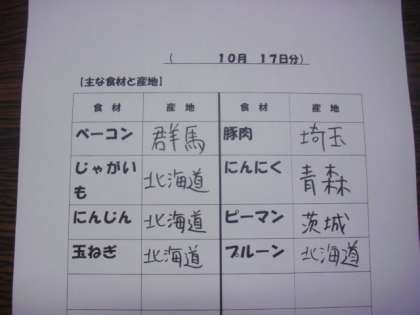 ( 10月 17日分)
【主な食材と産地】
食材 産地 食材 産地
ベーコン 群馬 豚肉 埼玉
じゃがいも 北海道 にんにく 青森
にんじん 北海道 ピーマン 茨城
玉ねぎ 北海道 プルーン 北海道